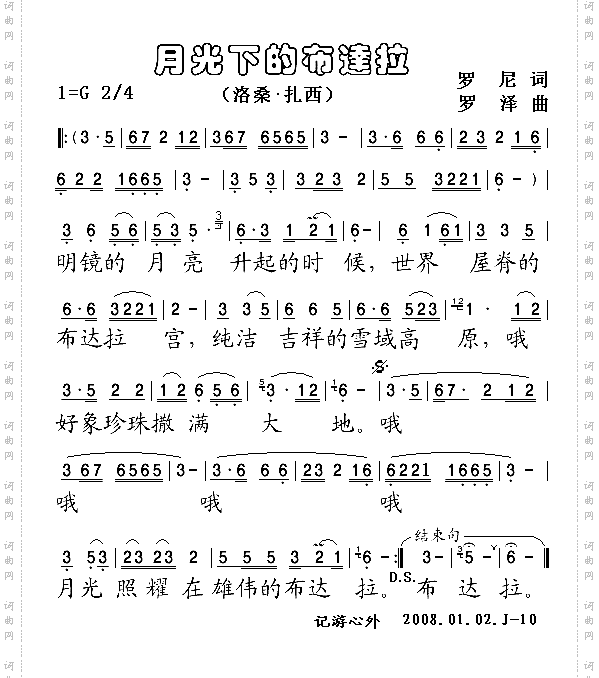 月光下的布達拉
1=G 2/4 （洛桑·扎西） 罗 尼 词
罗 泽 曲
‖:(3·5 | 67 2 12 | 367 6565 | 3 - | 3·6 6 6 | 23 2 1 6 |
6 2 2 1665 | 3 - | 3 5 3 | 3 23 2 | 5 5 3221 | 6 - ) |
3 6 5 6 | 5 3 5 · 3 | 6·3 1 2 1 | 6 - | 6 1 61 | 3 3 5 |
明镜的 月 亮 升起的时 候，世界 屋脊的
6·6 3221 | 2 - | 3 3 5 | 6 6 5 6 | 6·6 523 | 12 1 · 1 2 |
布达拉 宫，纯洁 吉祥的雪域高 原，哦
3·5 2 2 | 1 2 6 5 6 | 5 3 · 12 | 1 6 - | 3·5 | 67· 2 12 |
好象珍珠撒 满 大 地。哦
3 67 6565 | 3 - | 3·6 6 6 | 23 2 16 | 6221 1665 | 3 - |
哦 哦 哦
结束句
3 53 | 23 23 | 5 5 5 3 21 | 1 6 - :‖ 3 - | 3 5 - | 6 - ‖
月光 照耀 在雄伟的布达 拉。D.S.布 达 拉。
记游心外 2008.01.02.J-10
词曲网
词曲网
词曲网
词曲网
词曲网
词曲网
词曲网
词曲网
词曲网
词曲网